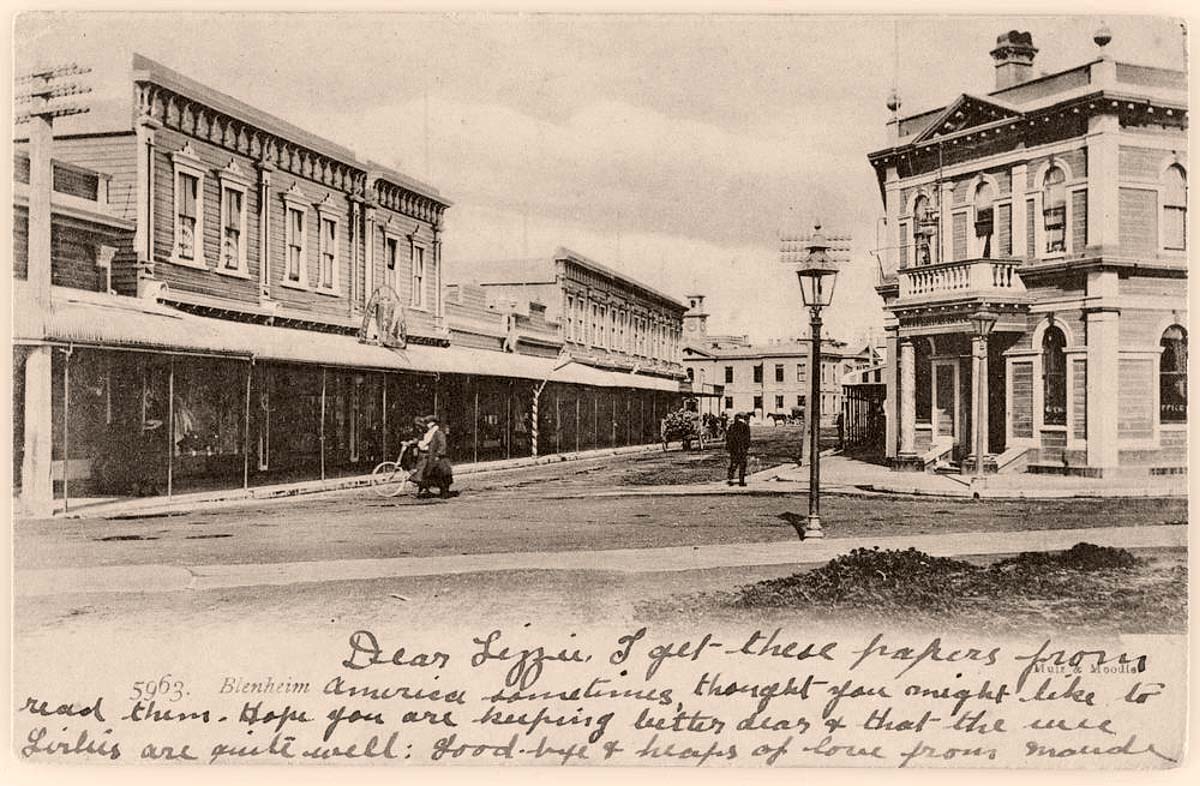 Dear Lizzie, I get these papers from
Muir & Moodie
5963. Blenheim
America sometimes, thought you might like to
read them. Hope you are keeping better dear & that the wee
girlies are quite well: Good-bye & heaps of love from Maude
OFFICE